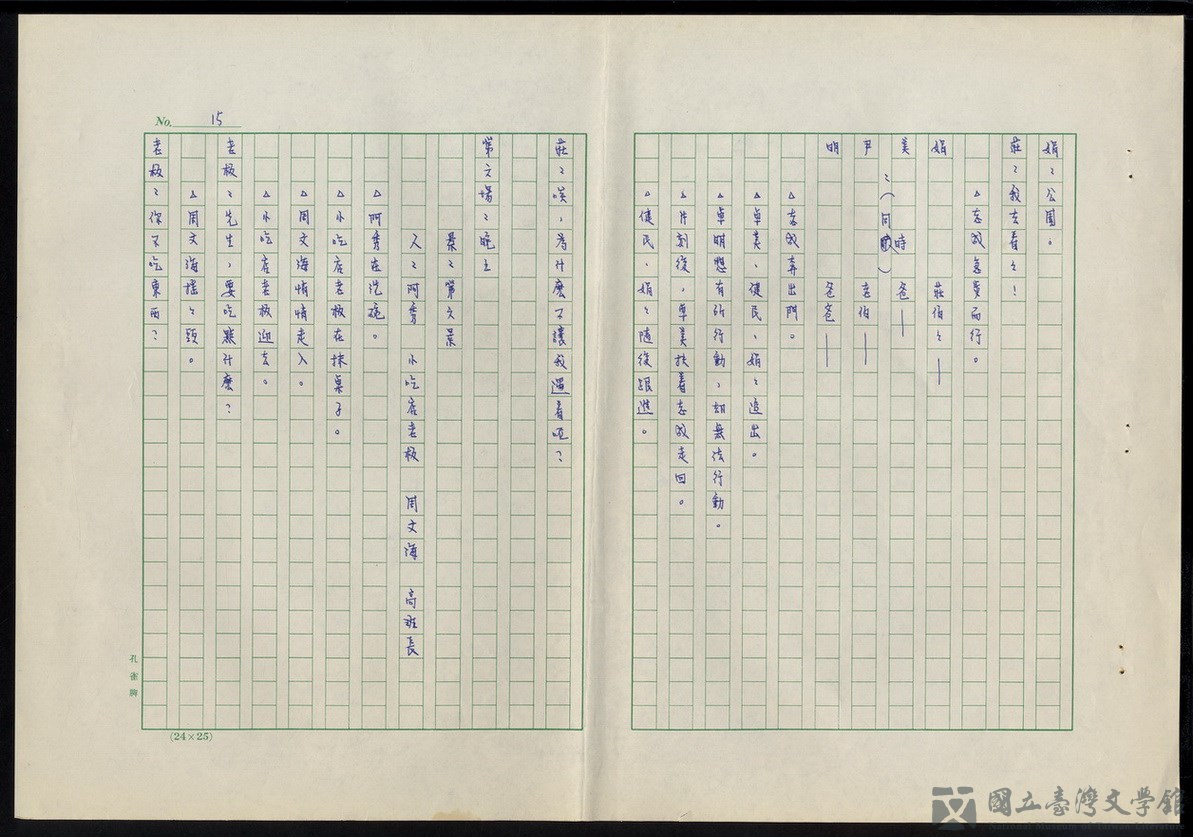 娟：公園。
莊：我去看看！
△志毅急奔而行。
娟　莊伯伯——
美　爸——
：（同時）
尹　老伯——
明　爸爸——
△志毅奔出門。
△卓美、健民、娟娟追出。
△卓明想有所行動，却無法行動。
△片刻後，卓美扶着志毅走回。
△健民、娟娟隨後跟進。
莊：唉，為什麼不讓我過着吧？
第六場：晚上
景：第六景
人：阿秀　小吃店老板　周文海　高班長
△阿秀在洗碗。
△小吃店老板在抹桌子。
△周文海悄悄走入。
△小吃店老板迎去。
老板：先生，要吃點什麼？
△周文海搖搖頭。
老板：你不吃東西？
No. 15
孔雀牌
(24×25)
國立臺灣文學館